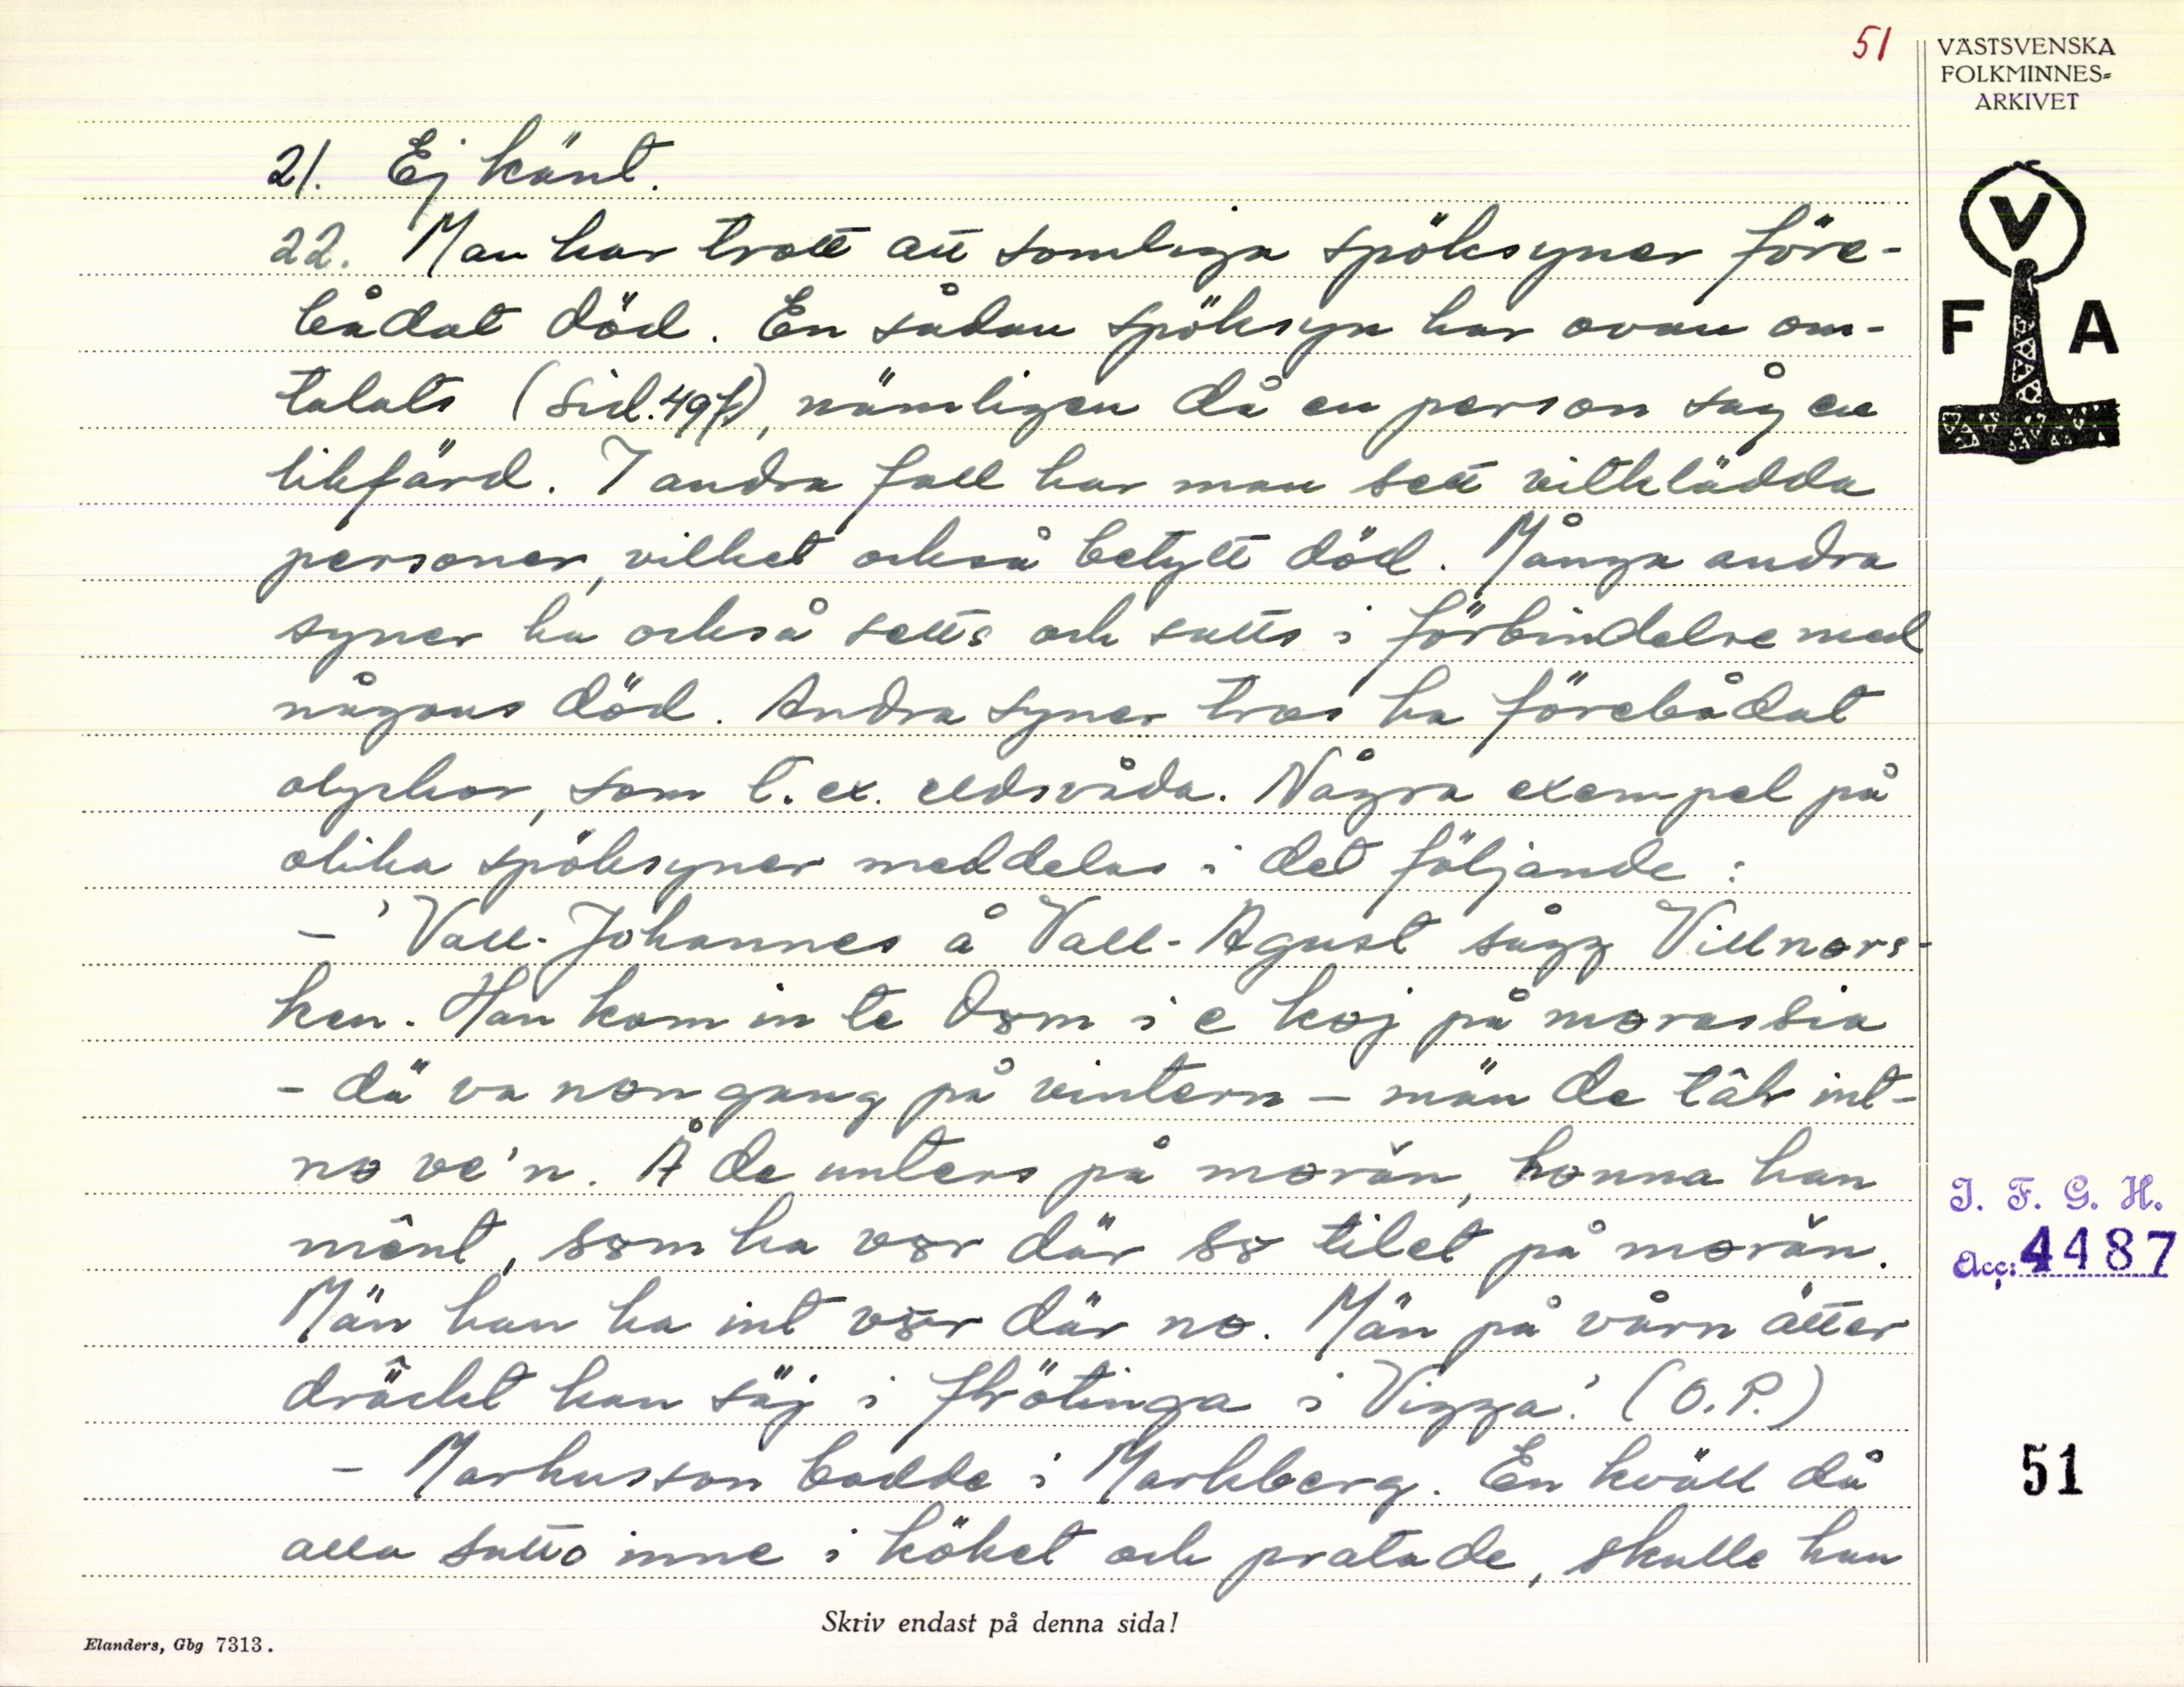 51
VÄSTSVENSKA
FOLKMINNES-
ARKIVET
V
F A
21. Ej känt.
22. Man har trott att somliga spöksyner före-
bådat död. En sådan spöksyn har ovan om-
talats (sid. 49f), nämligen då en person såg en
likfärd. I andra fall har man sett vitklädda
personer, vilket också betytt död. Många andra
syner ha också setts och satts i förbindelse med
någons död. Andra syner tros ha förebådat
olyckor, som t.ex. eldsvåda. Några exempel på
olika spöksyner meddelas i det följande:
- 'Vall-Johannes å Vall-Agust sågg Villnors-
ken. Han kom in te dom i e koj på morassia
- dä va non gang på vintern - män de tâlr int
no ve'n. Å de unters på morän, honna han
mênt, som ha vor där so tilet på morän.
Män han ha int vor där no. Män på vårn ätter
dräckt han säj i flrötinga i Vigga.' (O.P.)
- Markusson bodde i Markberg. En kväll då
alla sutto inne i köket och pratade, skulle han
Skriv endast på denna sida!
Elanders, Gbg 7313.
I. F. G. H.
Acc: 4487
51